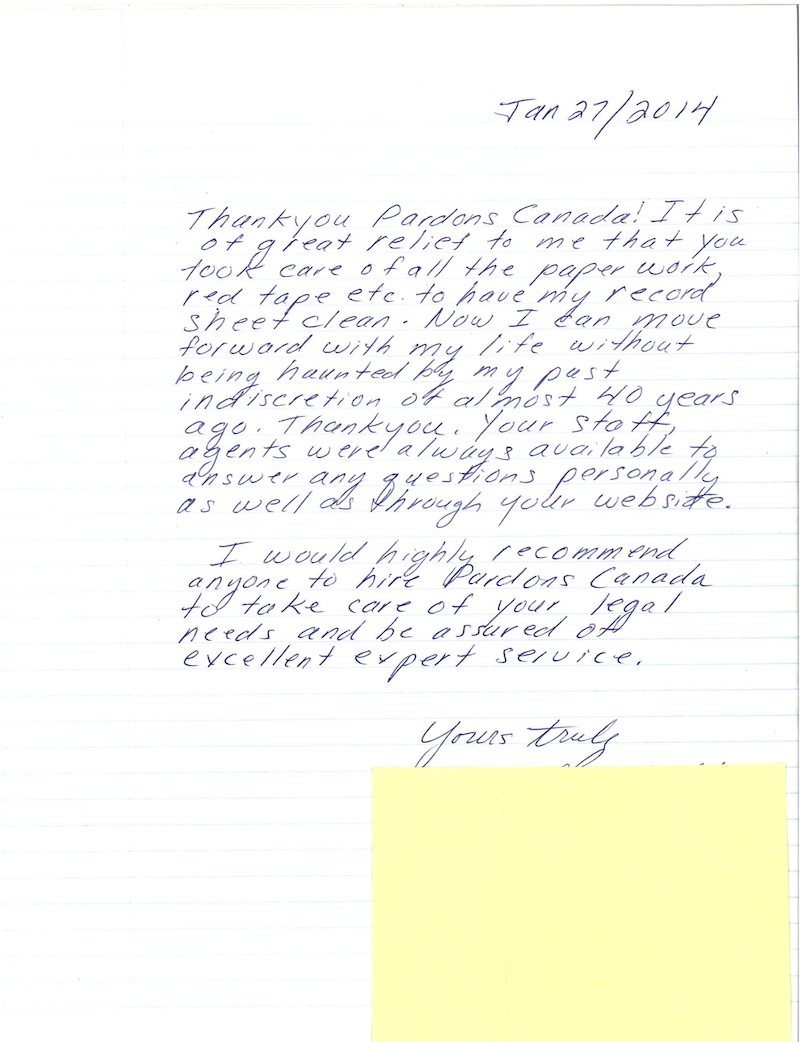 Jan 27/2014
Thankyou Pardons Canada! It is
of great relief to me that you
took care of all the paper work,
red tape etc. to have my record
sheet clean. Now I can move
forward with my life without
being haunted by my past
indiscretion of almost 40 years
ago. Thankyou. Your staff,
agents were always available to
answer any questions personally
as well as through your website.
I would highly recommend
anyone to hire Pardons Canada
to take care of your legal
needs and be assured of
excellent expert service.
Yours truly